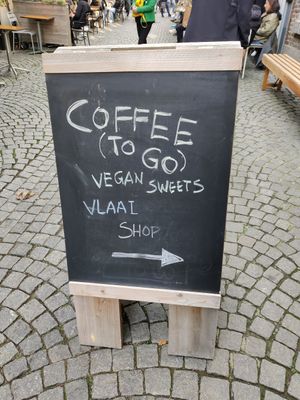 COFFEE
(TO GO)
VEGAN SWEETS
VLAAI
SHOP